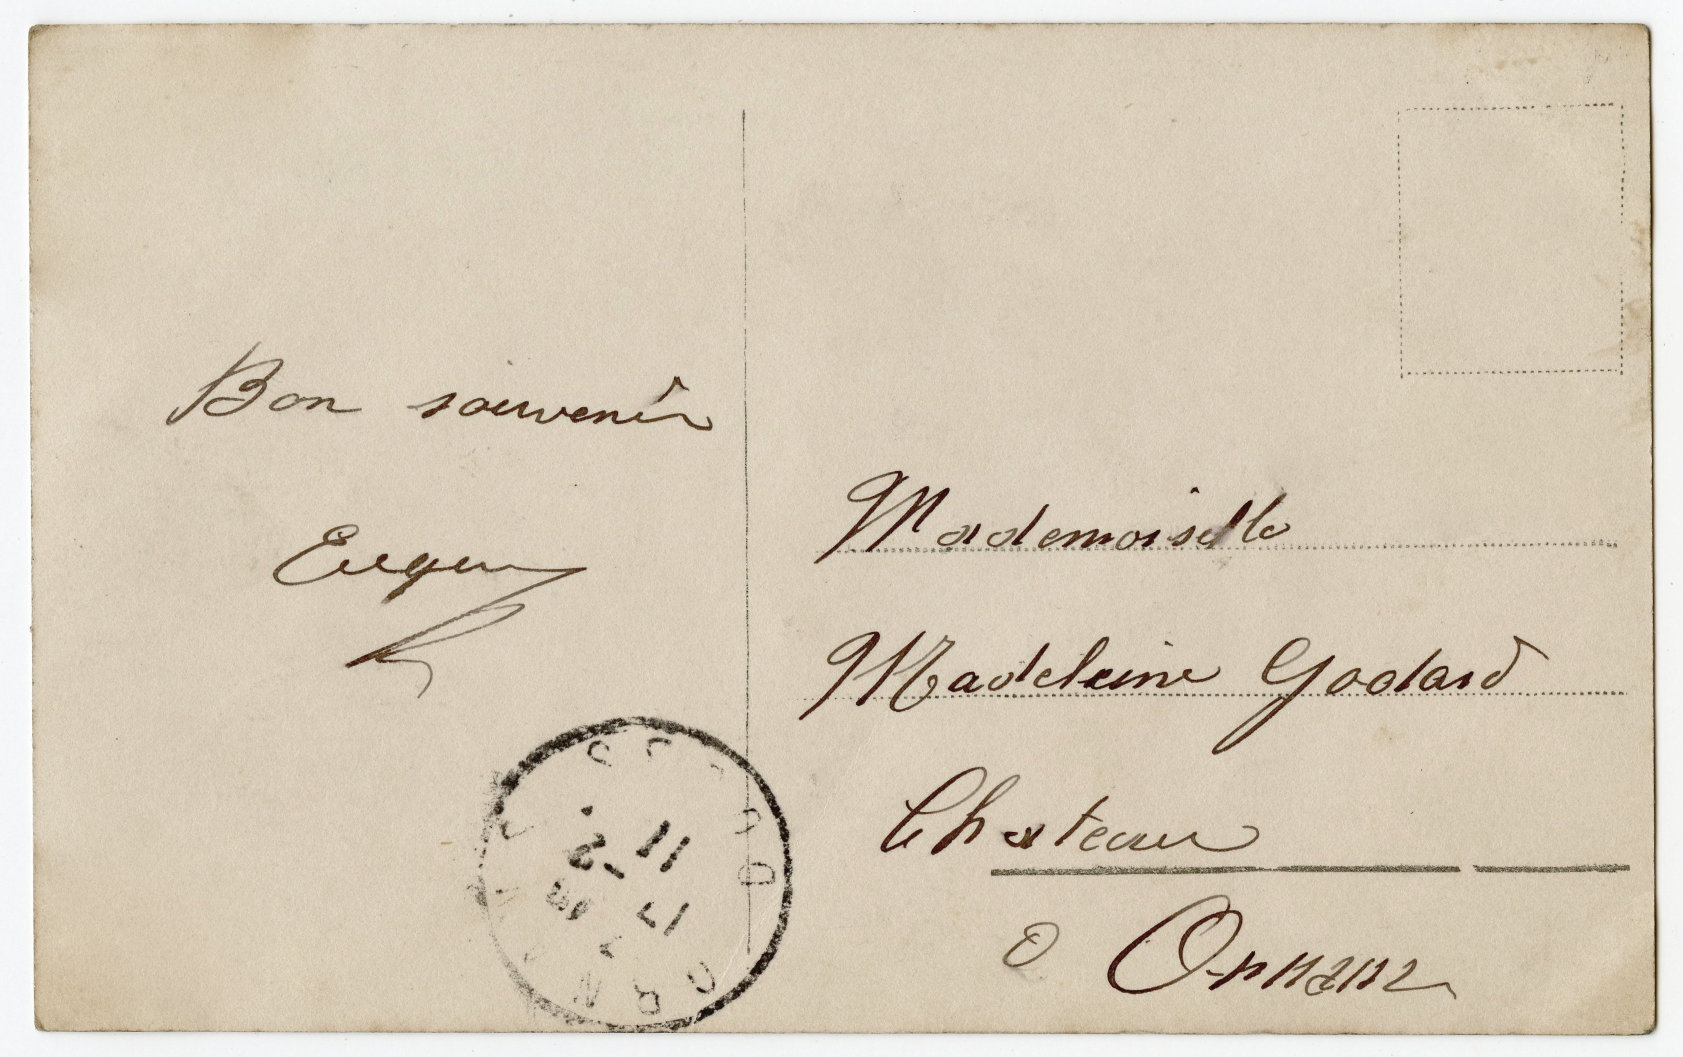 Bon souvenir
Eugen
Mademoiselle
Madeleine Godard
Chateau
o Ornans
11
17